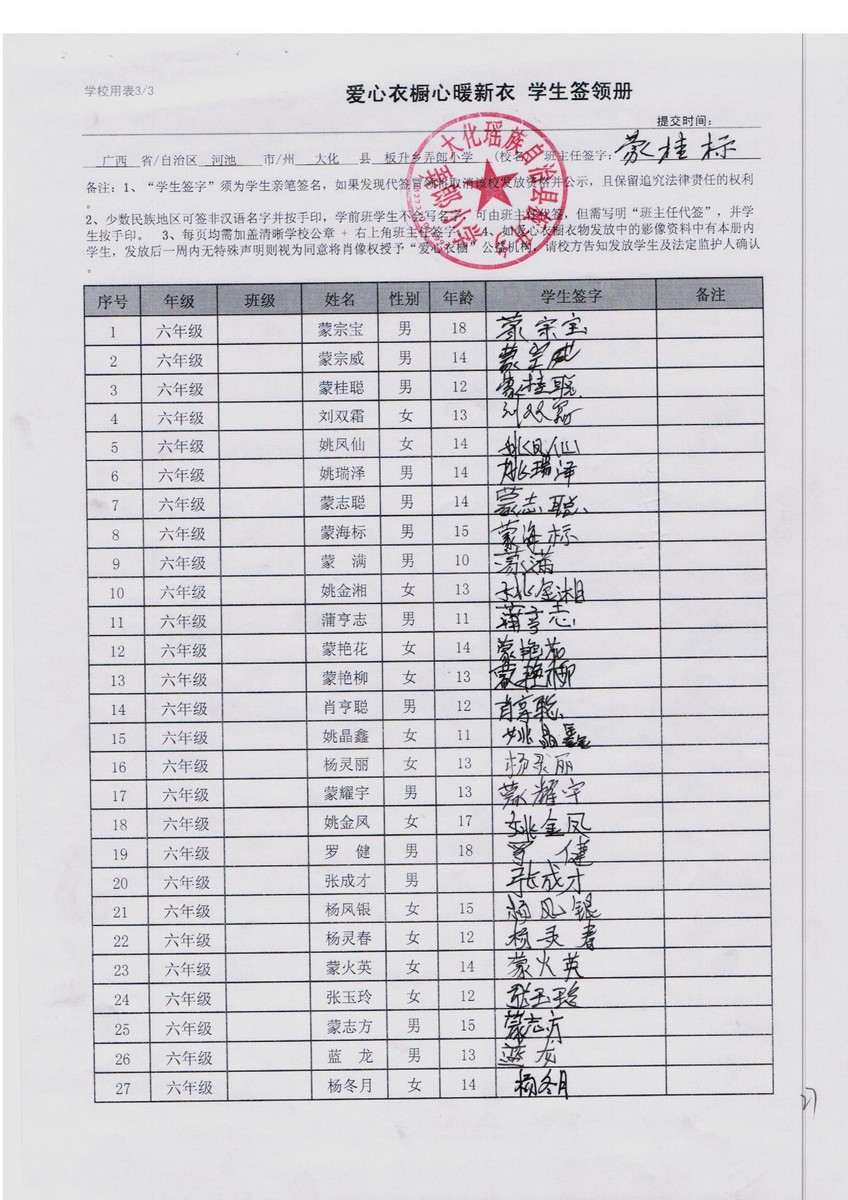 学校用表3/3
爱心衣橱心暖新衣 学生签领册
提交时间：
广西 省/自治区 河池 市/州 大化 县 板升乡弄郎小学 （校名 班主任签字： 蒙桂标
备注：1、“学生签字”须为学生亲笔签名，如果发现代签冒领将取消该校发放资格并公示，且保留追究法律责任的权利
。
2、少数民族地区可签非汉语名字并按手印，学前班学生不会写名字，可由班主任代签，但需写明“班主任代签”，并学
生按手印。 3、每页均需加盖清晰学校公章 + 右上角班主任签字。 4、如爱心衣橱衣物发放中的影像资料中有本册内
学生，发放后一周内无特殊声明则视为同意将肖像权授予“爱心衣橱”公益机构，请校方告知发放学生及法定监护人确认
。
序号 年级 班级 姓名 性别 年龄 学生签字 备注
1 六年级 蒙宗宝 男 18 蒙宗宝
2 六年级 蒙宗威 男 14 蒙宗威
3 六年级 蒙桂聪 男 12 蒙桂聪
4 六年级 刘双霜 女 13 刘双霜
5 六年级 姚凤仙 女 14 姚凤仙
6 六年级 姚瑞泽 男 14 姚瑞泽
7 六年级 蒙志聪 男 14 蒙志聪
8 六年级 蒙海标 男 15 蒙海标
9 六年级 蒙 满 男 10 蒙满
10 六年级 姚金湘 女 13 姚金湘
11 六年级 蒲亨志 男 11 蒲亨志
12 六年级 蒙艳花 女 14 蒙艳花
13 六年级 蒙艳柳 女 13 蒙艳柳
14 六年级 肖亨聪 男 12 肖亨聪
15 六年级 姚晶鑫 女 11 姚晶鑫
16 六年级 杨灵丽 女 13 杨灵丽
17 六年级 蒙耀宇 男 13 蒙耀宇
18 六年级 姚金凤 女 17 姚金凤
19 六年级 罗 健 男 18 罗 健
20 六年级 张成才 男 张成才
21 六年级 杨凤银 女 15 杨凤银
22 六年级 杨灵春 女 12 杨灵春
23 六年级 蒙火英 女 14 蒙火英
24 六年级 张玉玲 女 12 张玉玲
25 六年级 蒙志方 男 15 蒙志方
26 六年级 蓝 龙 男 13 蓝龙
27 六年级 杨冬月 女 14 杨冬月
27